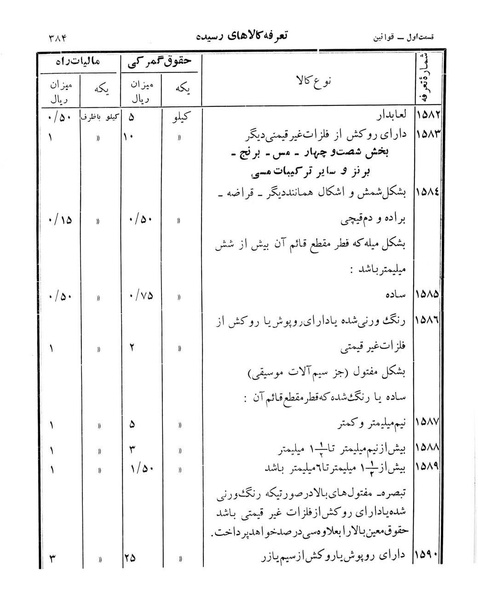 قسمت اول ــ قوانین تعرفه کالاهای رسیده ۳۸۴
شمارۀ تعرفه نوع کالا حقوق گمرکی مالیات راه
یکه میزان ریال یکه میزان ریال
۱۵۸۲ لعابدار کیلو ۵ کیلو باظرف ۰/۵۰
۱۵۸۳ دارای روکش از فلزات غیرقیمتی دیگر » ۱۰ » ۱
بخش شصت و چهار ـ مس ـ برنج ـ
برنز و سایر ترکیبات مسی
۱۵۸۴ بشکل شمش و اشکال همانند دیگر ـ قراضه ـ
براده و دم قیچی » ۰/۵۰ » ۰/۱۵
بشکل میله که قطر مقطع قائم آن بیش از شش
میلیمتر باشد :
۱۵۸۵ ساده » ۰/۷۵ » ۰/۵۰
۱۵۸۶ رنگ ورنی شده یا دارای روپوش یا روکش از
فلزات غیر قیمتی » ۲ » ۱
بشکل مفتول (جز سیم آلات موسیقی)
ساده یا رنگ شده که قطر مقطع قائم آن :
۱۵۸۷ نیم میلیمتر و کمتر » ۵ » ۱
۱۵۸۸ بیش از نیم میلیمتر تا ۱ ۱/۲ میلیمتر » ۳ » ۱
۱۵۸۹ بیش از ۱ ۱/۲ میلیمتر تا ۶ میلیمتر باشد » ۱/۵۰ » ۱
تبصره ـ مفتول های بالا در صورتیکه رنگ ورنی
شده یا دارای روکش از فلزات غیر قیمتی باشد
حقوق معین بالا را بعلاوه سی درصد خواهد پرداخت.
۱۵۹۰ دارای روپوش یا روکش از سیم یا زر » ۲۵ » ۳